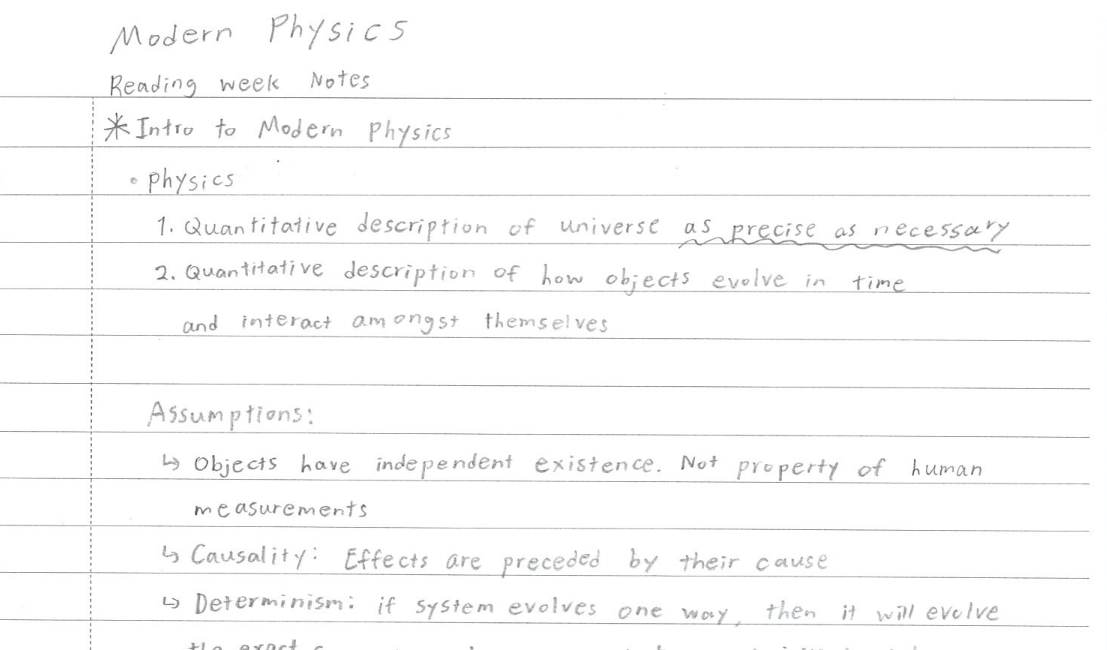 Modern Physics
Reading week Notes
* Intro to Modern Physics
• Physics
1. Quantitative description of universe as precise as necessary
2. Quantitative description of how objects evolve in time
and interact amongst themselves
Assumptions:
↳ Objects have independent existence. Not property of human
measurements
↳ Causality: Effects are preceded by their cause
↳ Determinism: if system evolves one way, then it will evolve
the exact